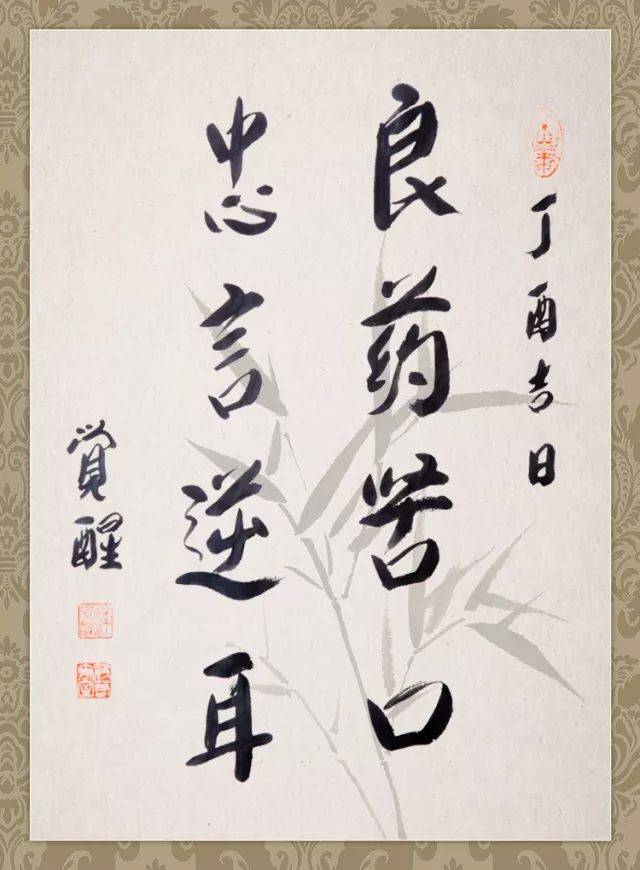 丁酉吉日
良药苦口
忠言逆耳
覺醒